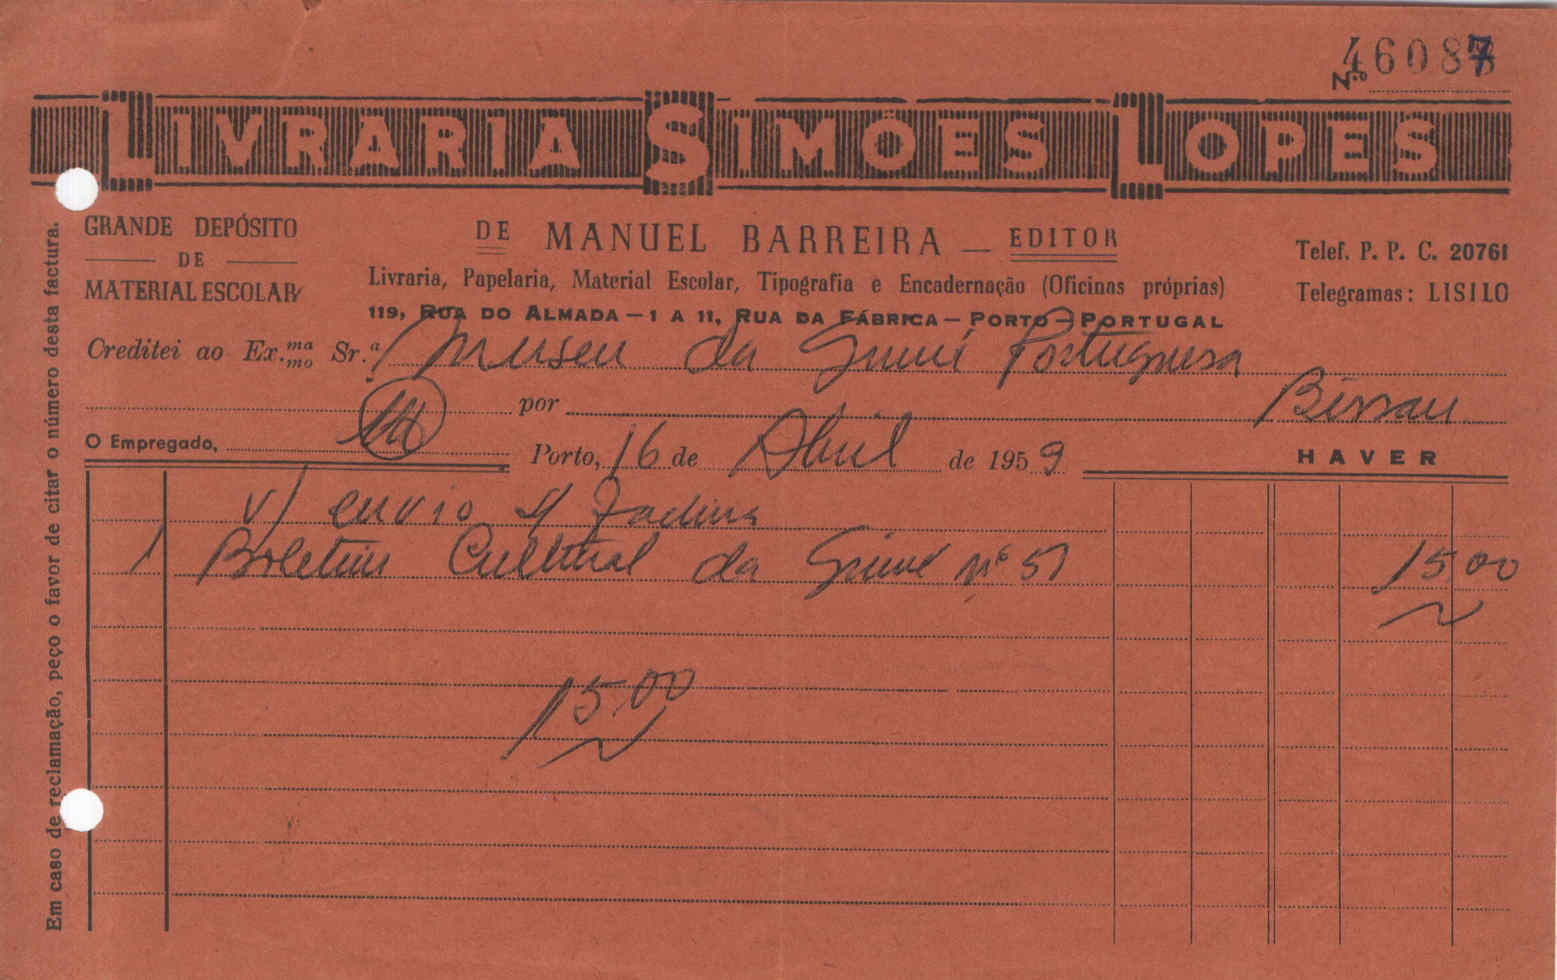 Nº 46087
LIVRARIA SIMÕES LOPES
GRANDE DEPÓSITO
DE
MATERIAL ESCOLAR
DE MANUEL BARREIRA — EDITOR
Livraria, Papelaria, Material Escolar, Tipografia e Encadernação (Oficinas próprias)
119, RUA DO ALMADA — 1 A 11, RUA DA FÁBRICA — PORTO — PORTUGAL
Telef. P. P. C. 20761
Telegramas: LISILO
Creditei ao Ex.ma mo Sr.a Museu da Guiné Portuguesa
por Bissau
O Empregado,
Porto, 16 de Abril de 1959
HAVER
V/ envio s/ factura
1 Boletim Cultural da Guiné nº 51 15,00
15,00
Em caso de reclamação, peço o favor de citar o número desta factura.